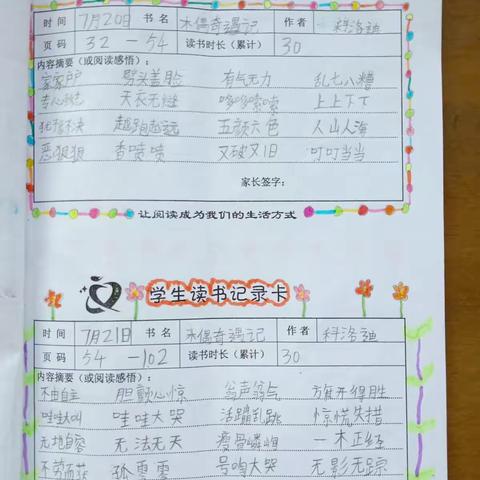 时间 7月20日 书名 木偶奇遇记 作者 科洛迪
页码 32—54 读书时长（累计） 30
内容摘要（或阅读感悟）：
家家户户 劈头盖脸 有气无力 乱七八糟
天衣无缝 哆哆嗦嗦 上上下下
犹豫不决 越跑越远 五颜六色 人山人海
恶狠狠 香喷喷 又破又旧 叮叮当当
家长签字：
让阅读成为我们的生活方式
学生读书记录卡
时间 7月21日 书名 木偶奇遇记 作者 科洛迪
页码 54—102 读书时长（累计） 30
内容摘要（或阅读感悟）：
不由自主 胆颤心惊 瓮声瓮气 旗开得胜
哇哇大叫 哇哇大哭 活蹦乱跳 惊慌失措
无地自容 无法无天 瘦骨嶙峋 一本正经
不劳而获 孤零零 号啕大哭 无影无踪